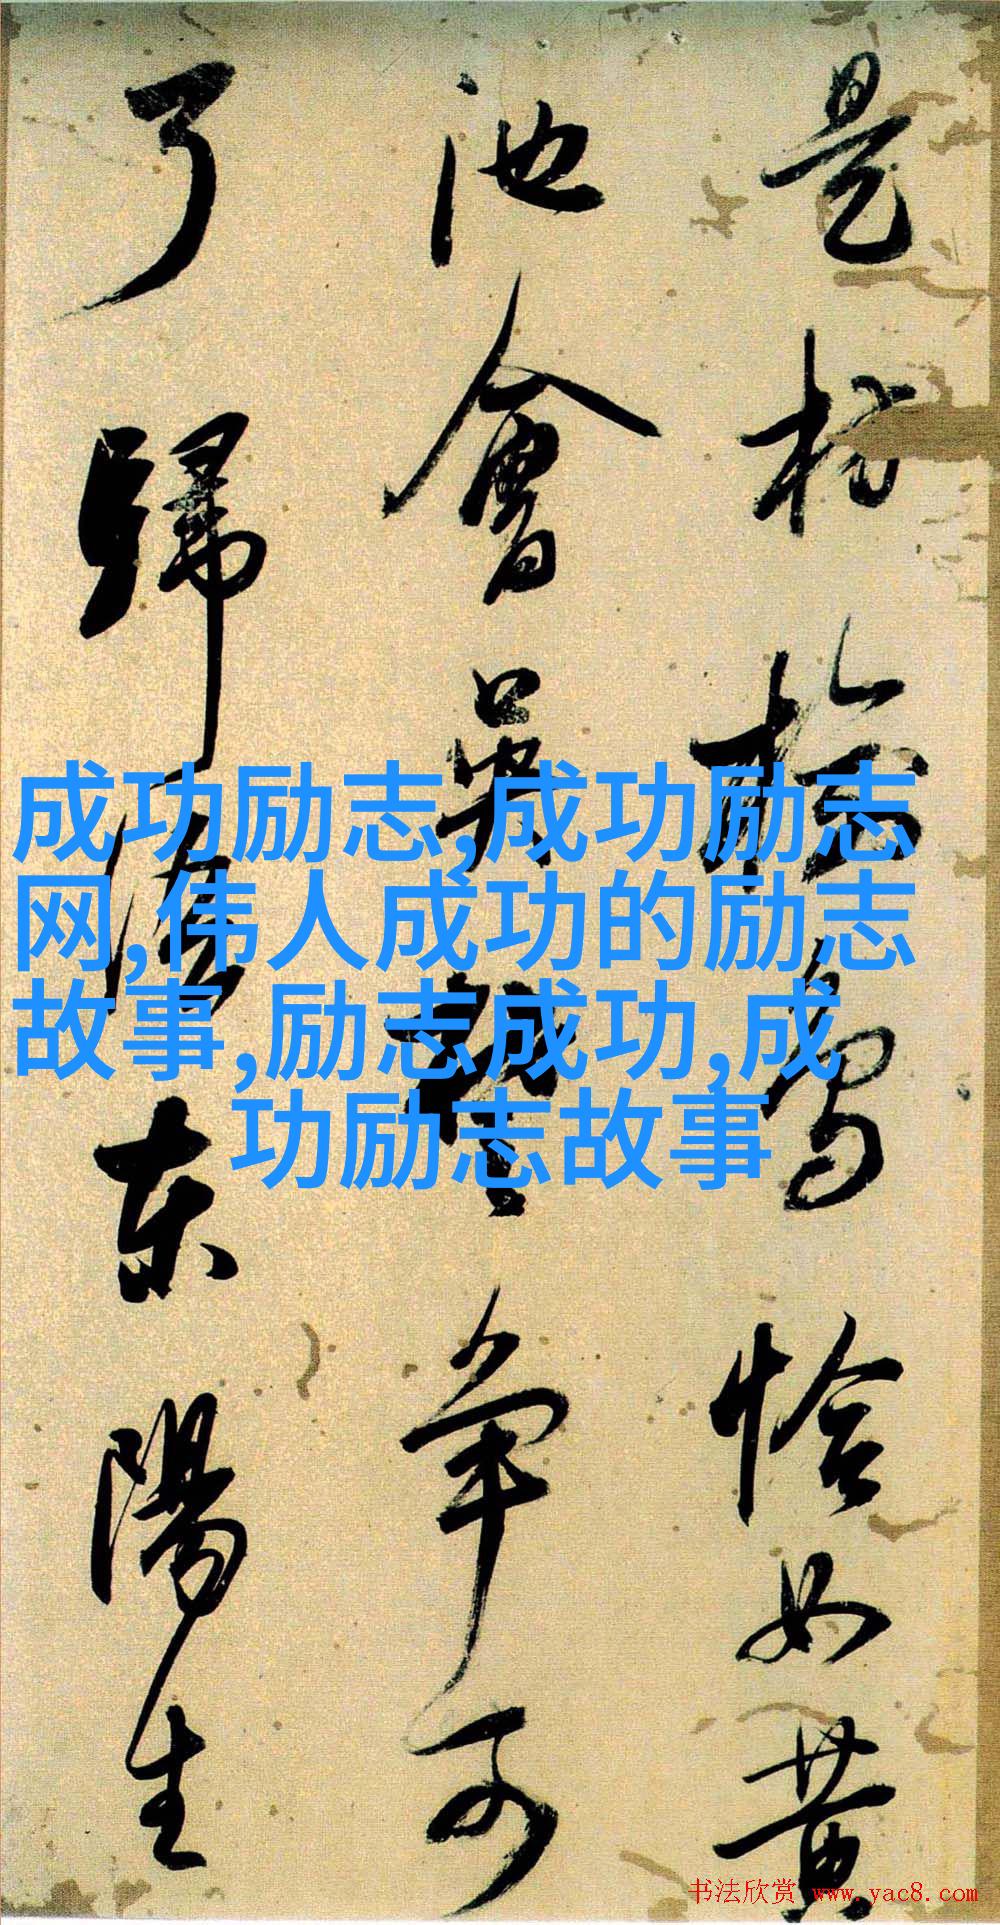 是枋恰如黄
池會吴争
了歸東陽生
成功励志,成功励志
网,伟人成功的励志
故事,励志成功,成
功励志故事
书法欣赏 www.yac8.com